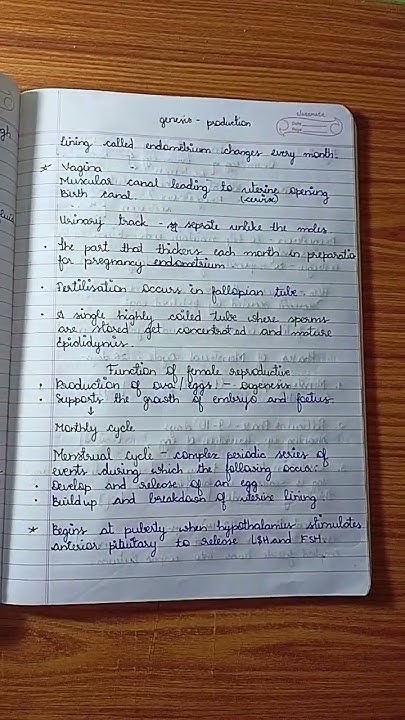 classmate
Date
Page
genesis - production
lining called endometrium changes every month.
* Vagina -
Muscular canal leading to uterine opening
Birth canal (cervix)
Urinary track - seprate unlike the males
• The part that thickens each month in preparatio
for pregnancy endometrium
• Fertilisation occurs in fallopian tube.
• A single highly coiled tube where sperms
are stored get concentrated and mature
Epididymis.
Function of female reproductive
• Production of ova/eggs - Oogenesis
• Supports the growth of embryo and foetus.
↓
Monthly cycle
Menstrual cycle - complex periodic series of
events during which the following occur:
• Develop and release of an egg
• Buildup and breakdown of uterine lining
* Begins at puberty when hypothalamus stimulates
anterior pituitary to release LSH and FSH.